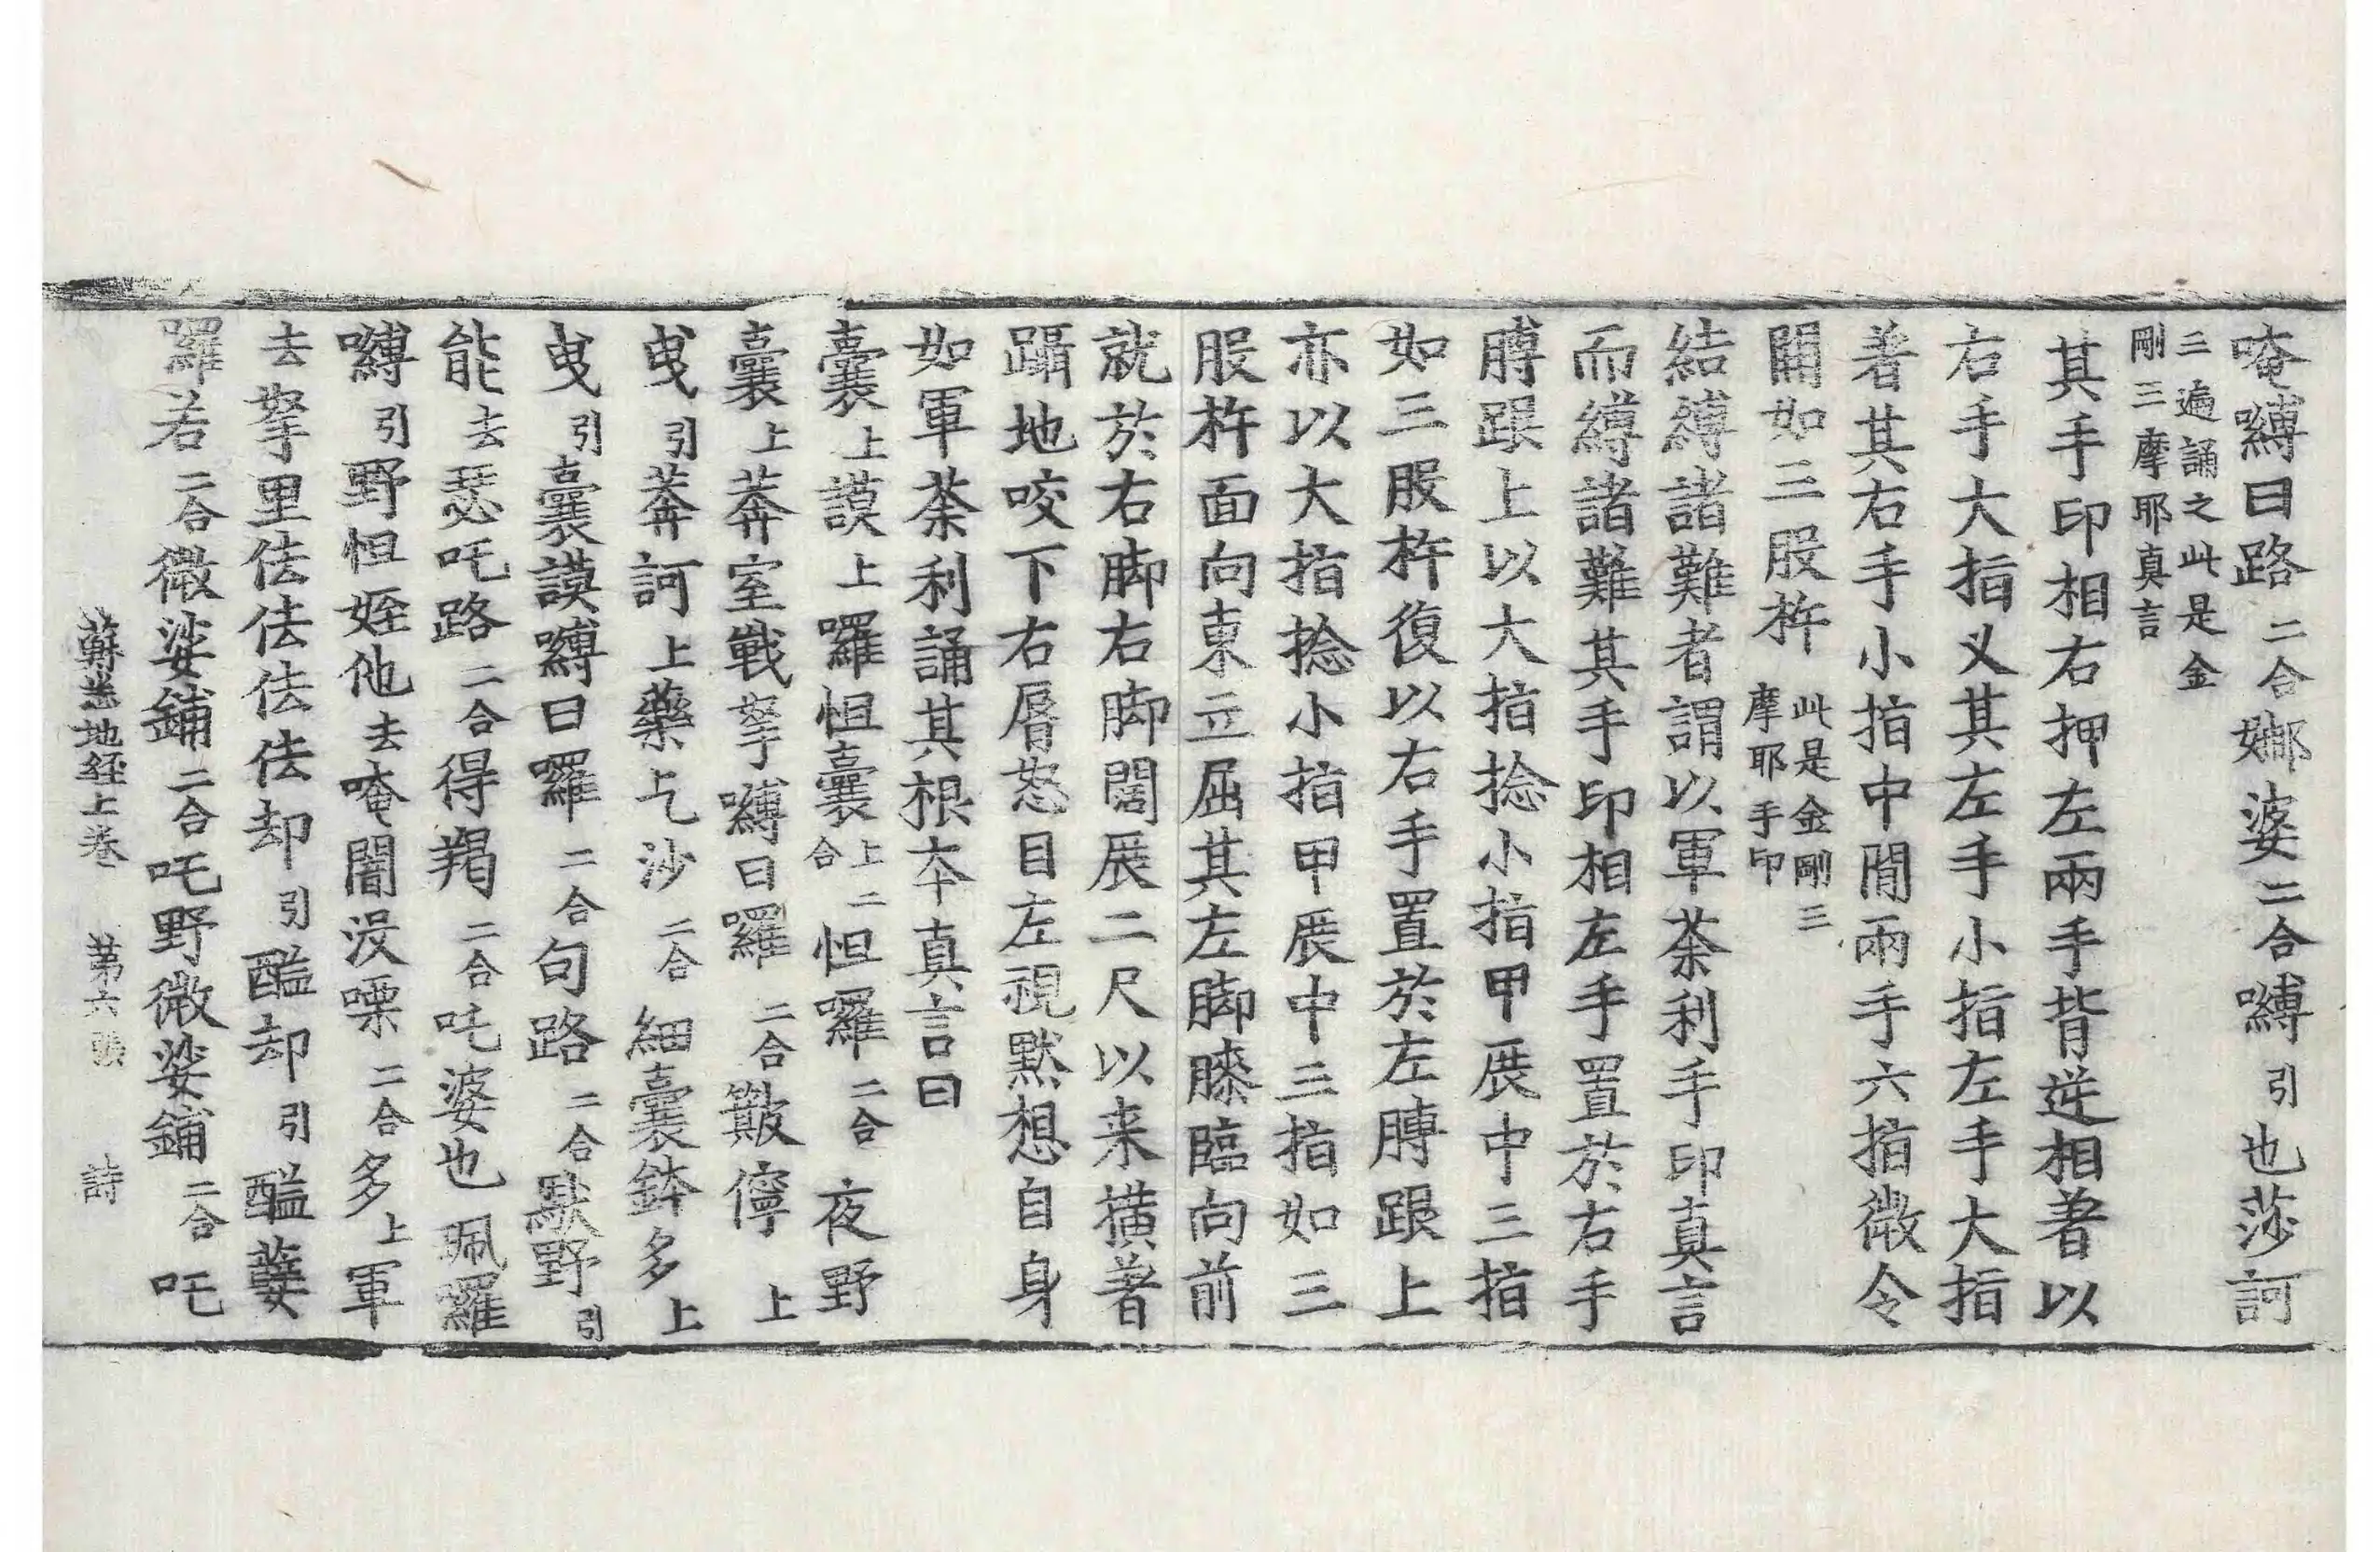 唵嚩曰路二合娜婆二合嚩引也莎訶
三遍誦之此是金
剛三摩耶真言
其手印相右押左兩手背逆相著以
右手大指叉其左手小指左手大指
著其右手小指中間兩手六指微令
開如三股杵此是金剛三
摩耶手印
結縛諸難者謂以軍荼利手印真言
而縛諸難其手印相左手置於右手
膊跟上以大指捻小指甲展中三指
如三股杵復以右手置於左膊跟上
亦以大指捻小指甲展中三指如三
股杵面向東立屈其左脚膝臨向前
就於右脚右脚闊展二尺以来撗著
躡地咬下右脣怒目左視默想自身
如軍荼利誦其根本真言曰
囊上謨上囉怛囊上二合怛囉二合夜野
囊上莾室戰拏嚩曰囉二合簸儜上
曵引莾訶上藥乞沙二合細囊鉢多上
曵引囊謨嚩曰囉二合句路二合馱野引
能去瑟吒路二合得羯二合吒婆也珮羅
嚩引野怛姪他去唵闇沒㗚二合多上軍
去拏里佉佉佉佉却引醯却引醯
羅若二合微娑鋪二合吒野微娑鋪二合吒
蘇悉地經上卷 第六張 詩